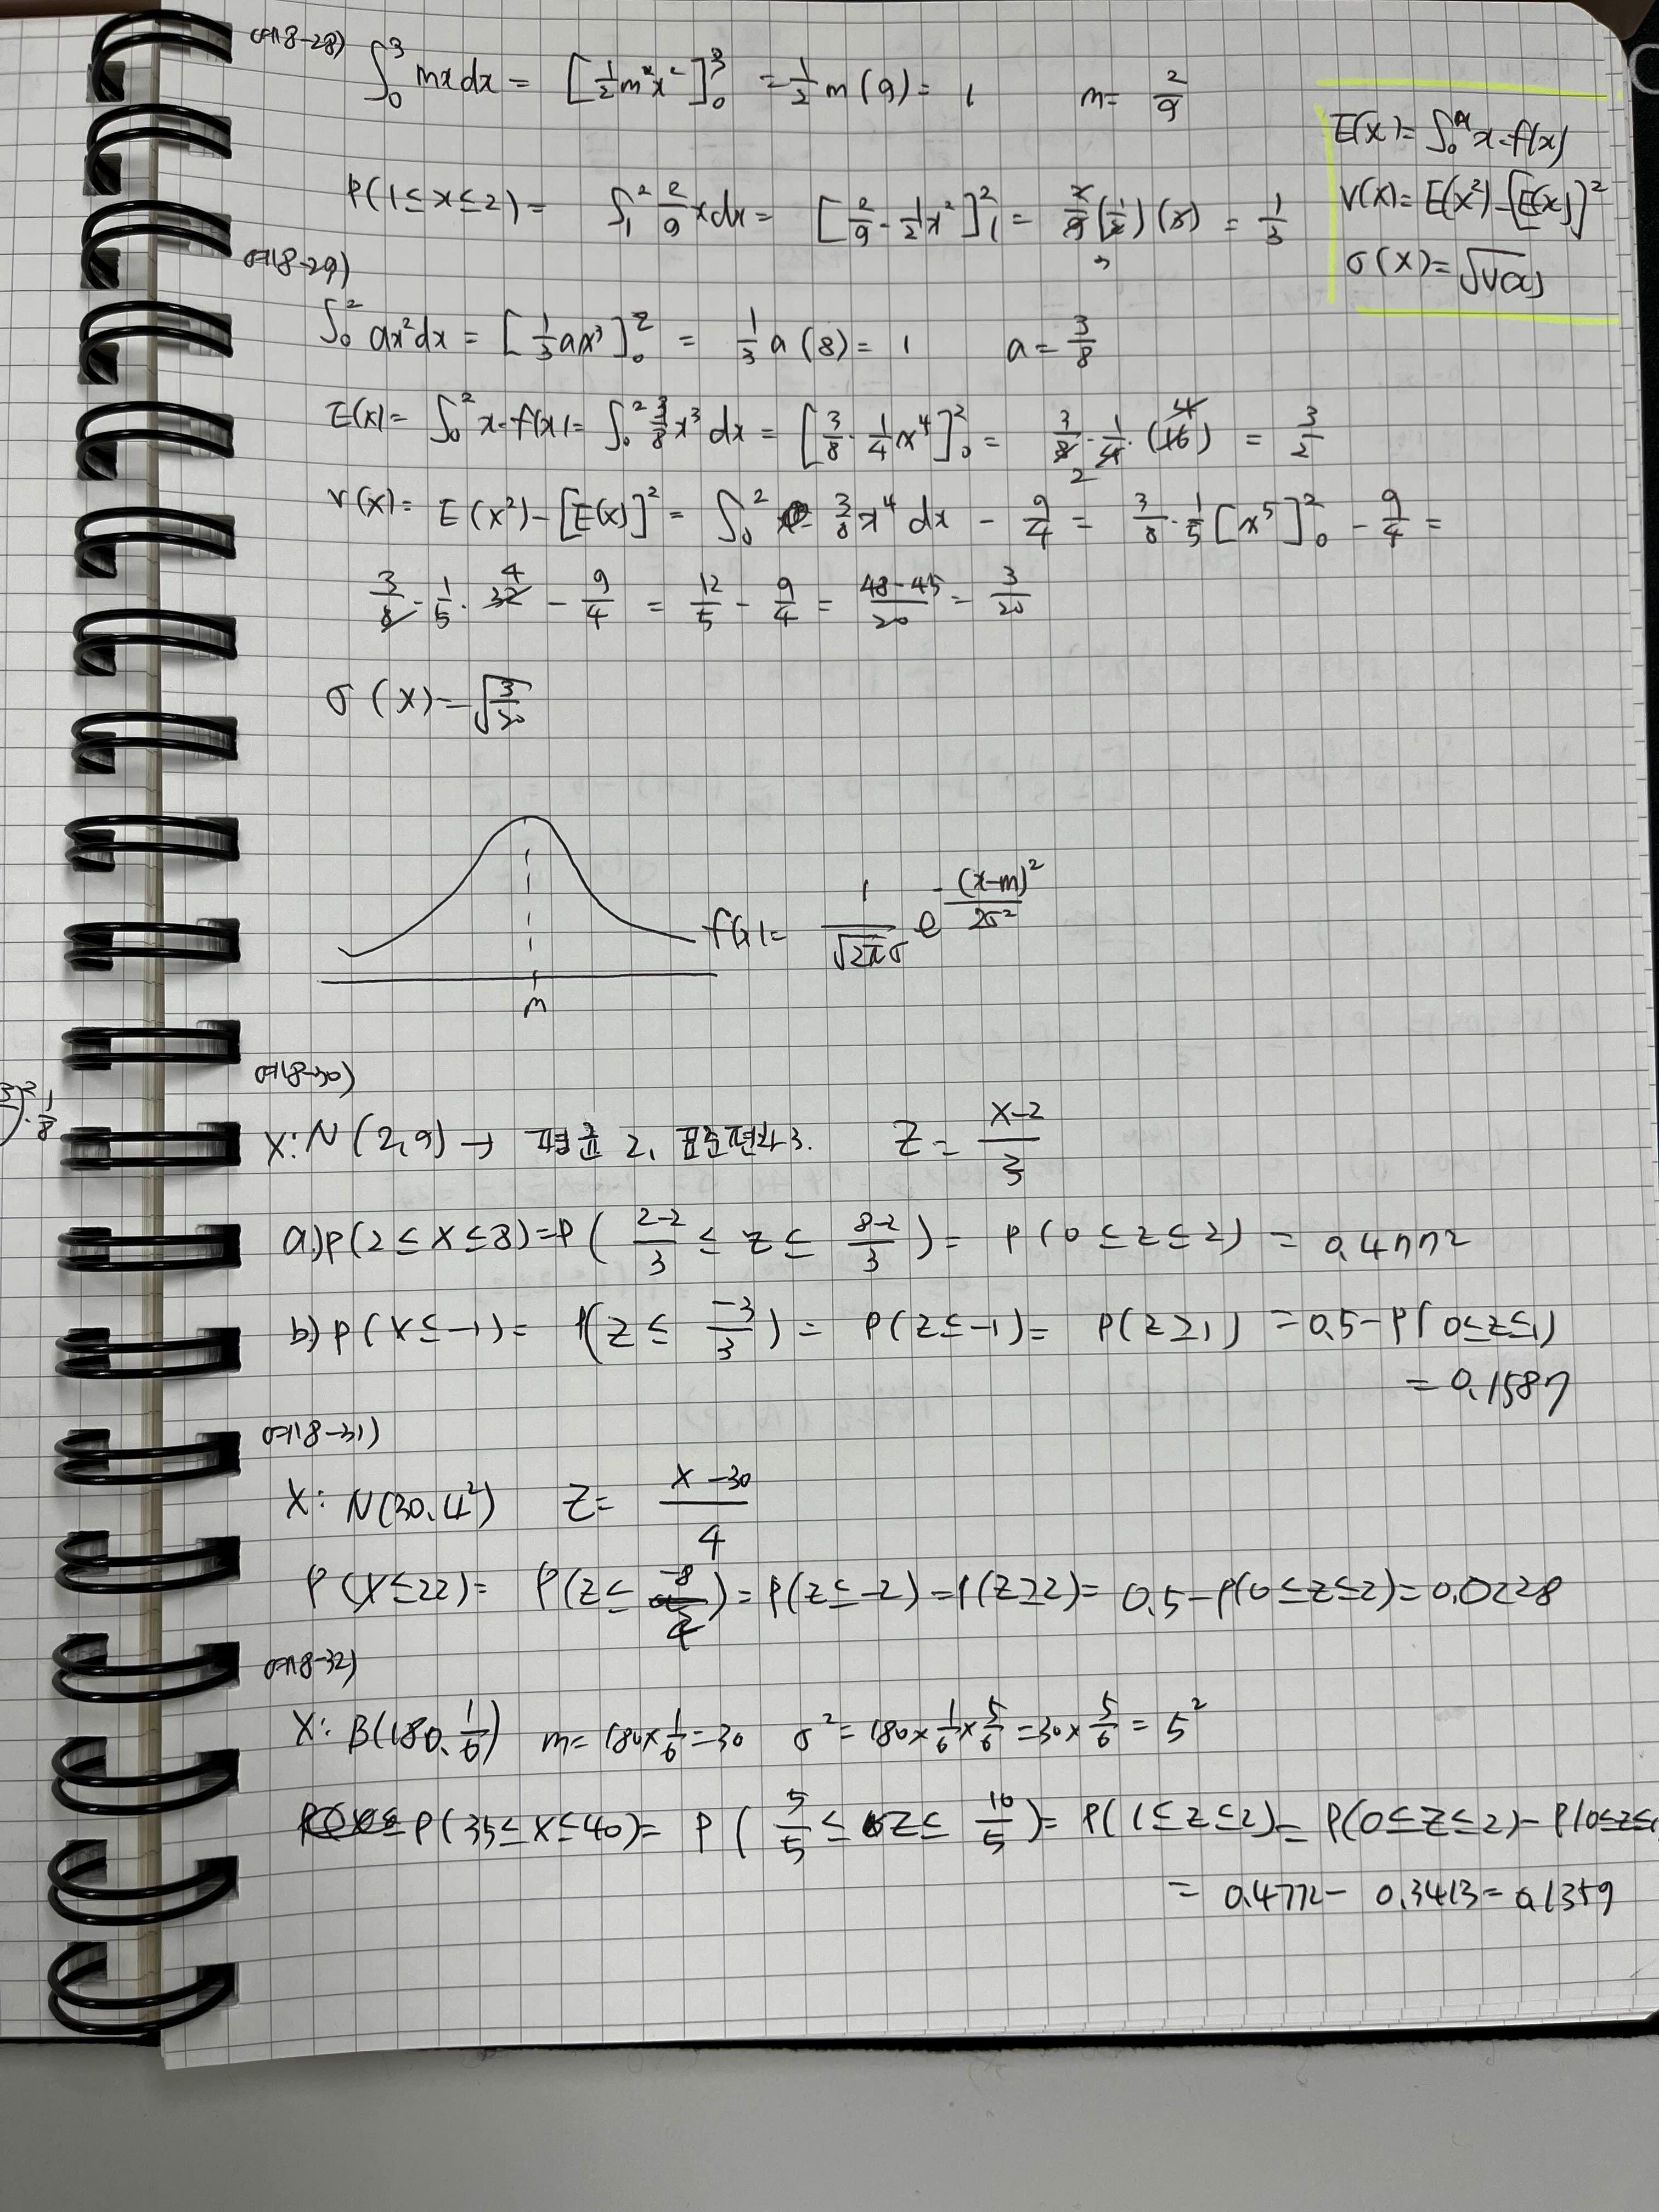 예18-28)
∫₀³ mxdx = [½m²x²]₀³ = ½m(9) = 1    m = 2/9
P(1≤x≤2) = ∫₁² 2/9 xdx = [2/9·½x²]₁² = 2/9(½)(3) = 1/3
E(X) = ∫₀ᵅ x·f(x)
V(X) = E(X²)-[E(X)]²
σ(X) = √V(X)
예18-29)
∫₀² ax²dx = [⅓ax³]₀² = ⅓a(8) = 1    a = 3/8
E(X) = ∫₀² x·f(x) = ∫₀² 3/8 x³dx = [3/8·¼x⁴]₀² = 3/8·1/4·(16) = 3/2
V(X) = E(X²)-[E(X)]² = ∫₀² 3/8 x⁴ dx - 9/4 = 3/8·1/5[x⁵]₀² - 9/4 =
3/8·1/5·32 - 9/4 = 12/5 - 9/4 = (48-45)/20 = 3/20
σ(X) = √(3/20)
f(x) = 1/(√2π σ) e^(-(x-m)²/2σ²)
m
예18-30)
X: N(2,9) → 평균 2, 표준편차 3.    Z = (X-2)/3
a) P(2≤X≤8) = P((2-2)/3 ≤ Z ≤ (8-2)/3) = P(0≤Z≤2) = 0.4772
b) P(X≤-1) = P(Z≤ -3/3) = P(Z≤-1) = P(Z≥1) = 0.5-P(0≤Z≤1)
= 0.1587
예18-31)
X: N(30, 4²)    Z = (X-30)/4
P(X≤22) = P(Z≤ -8/4) = P(Z≤-2) = P(Z≥2) = 0.5-P(0≤Z≤2) = 0.0228
예18-32)
X: B(180, 1/6)    m = 180×1/6 = 30    σ² = 180×1/6×5/6 = 30×5/6 = 5²
P(35≤X≤40) = P(5/5 ≤ Z ≤ 10/5) = P(1≤Z≤2) = P(0≤Z≤2)-P(0≤Z≤1
= 0.4772 - 0.3413 = 0.1359